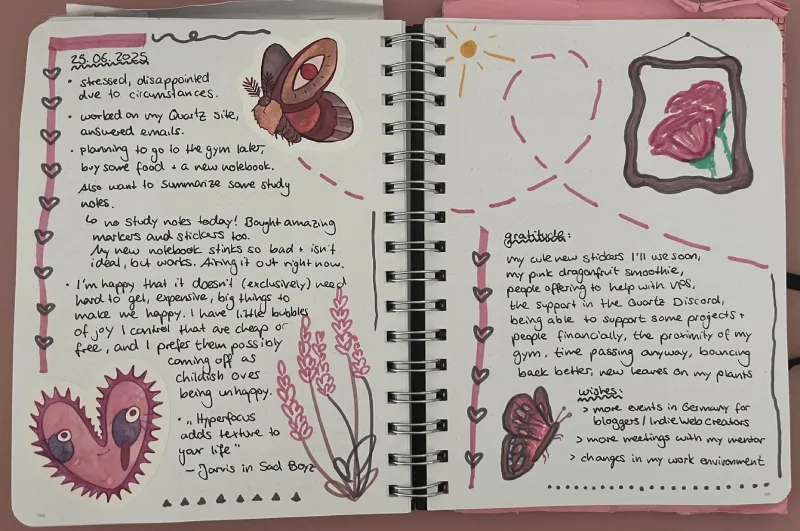 25.06.2025
• stressed, disappointed
due to circumstances.
• worked on my Quartz site,
answered emails.
• planning to go to the gym later,
buy some food + a new notebook.
Also want to summarize some study
notes.
↳ no study notes today! Bought amazing
markers and stickers too.
My new notebook stinks so bad + isn't
ideal, but works. Airing it out right now.
• I'm happy that it doesn't (exclusively) need
hard to get, expensive, big things to
make me happy. I have little bubbles
of joy I control that are cheap or
free, and I prefer them possibly
coming off as
childish over
being unhappy.
• „Hyperfocus
adds texture to
your life"
– Jarvis in Sad Boyz
gratitude:
my cute new stickers I'll use soon,
my pink dragonfruit smoothie,
people offering to help with VPS,
the support in the Quartz Discord,
being able to support some projects +
people financially, the proximity of my
gym, time passing anyway, bouncing
back better, new leaves on my plants
wishes:
> more events in Germany for
bloggers / IndieWeb creators
> more meetings with my mentor
> changes in my work environment